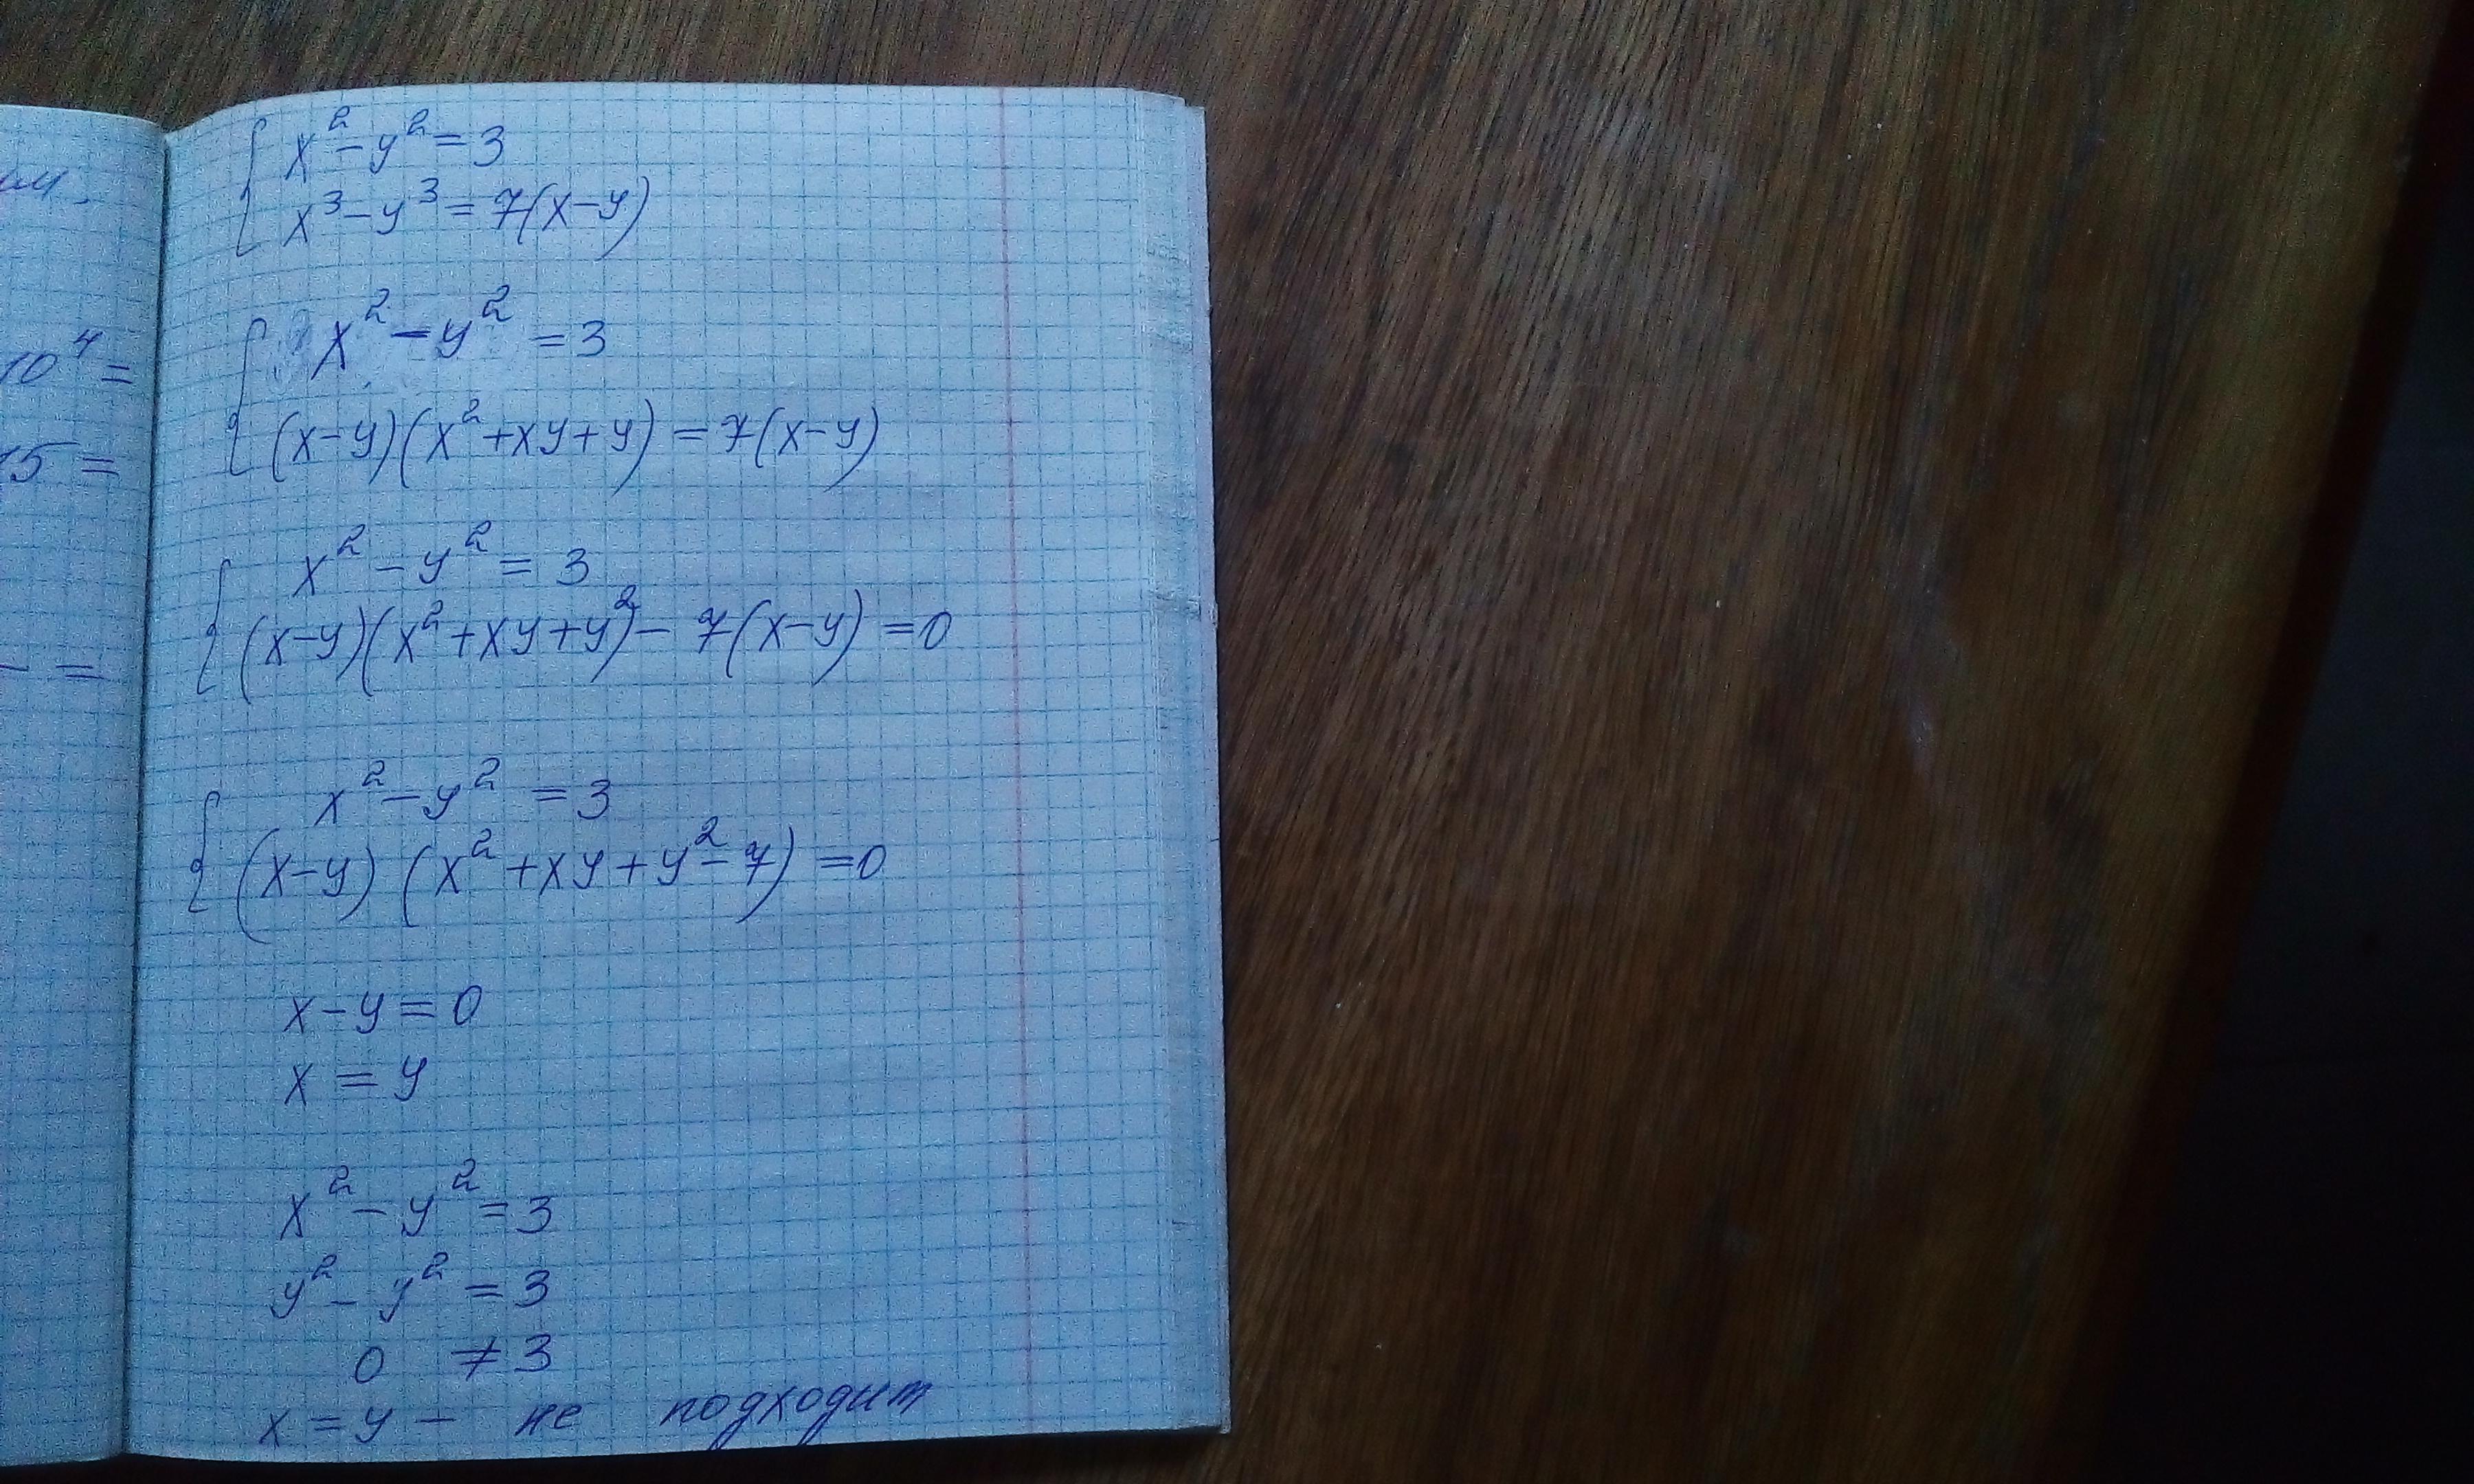 им.
10⁴ =
15 =
— =
{ x² - y² = 3
x³ - y³ = 7(x-y)
{ x² - y² = 3
(x-y)(x² + xy + y) = 7(x-y)
{ x² - y² = 3
(x-y)(x² + xy + y²) - 7(x-y) = 0
{ x² - y² = 3
(x-y) (x² + xy + y² - 7) = 0
x - y = 0
x = y
x² - y² = 3
y² - y² = 3
0 ≠ 3
x = y - не подходит